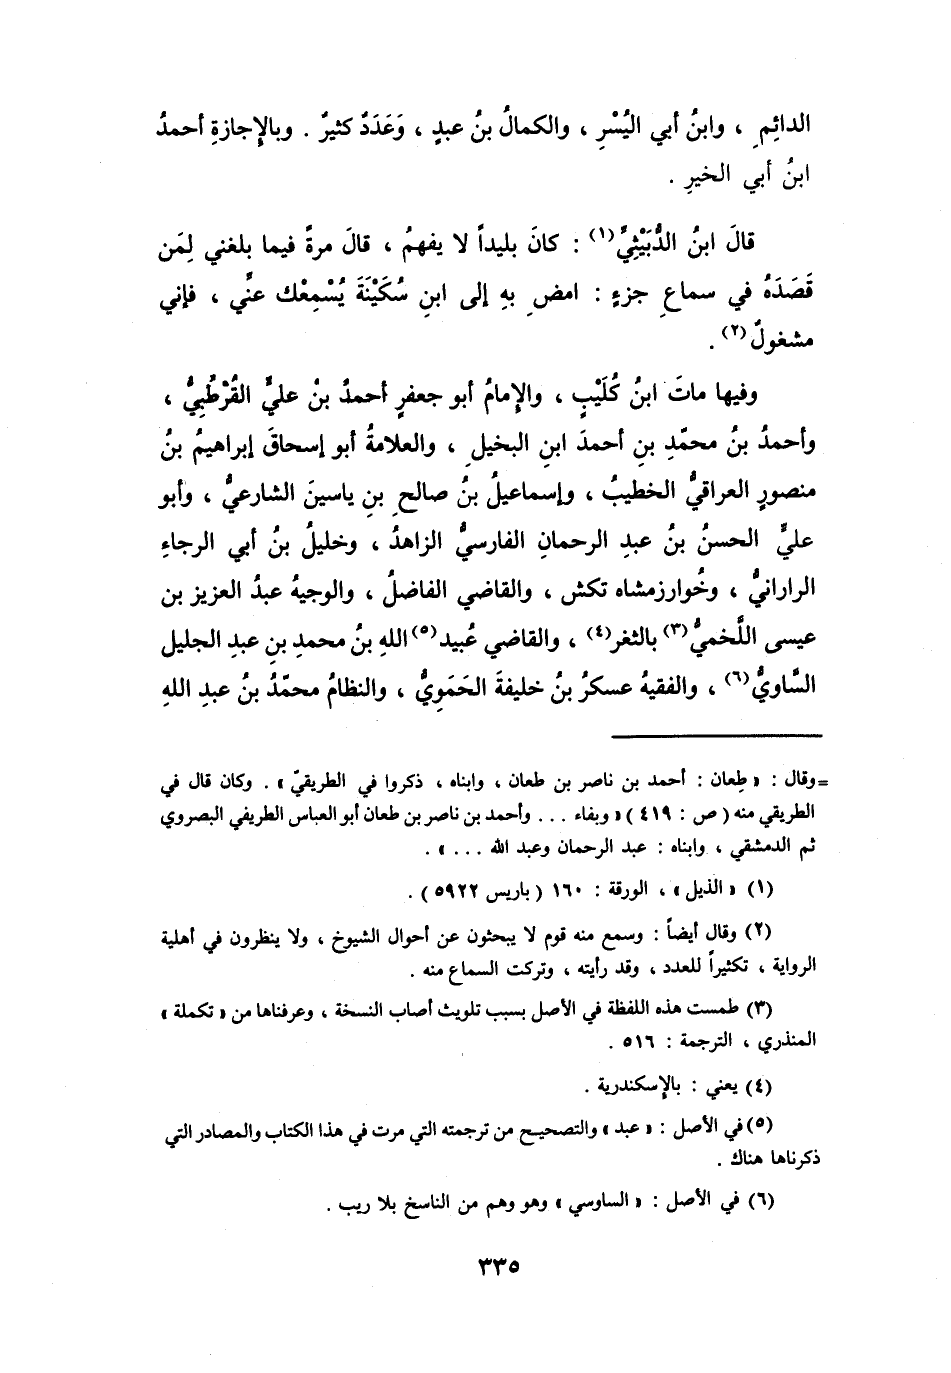 الدائِمِ ، وابنُ أبي اليُسْرِ ، والكمالُ بنُ عبدٍ ، وَعَدَدٌ كثيرٌ . وبالإِجازةِ أحمدُ
ابنُ أبي الخيرِ .
قالَ ابنُ الدُّبَيْثِيِّ(١) : كانَ بليداً لا يفهمُ ، قالَ مرةً فيما بلغني لِمَن
قَصَدَهُ في سماعِ جزءٍ : امضِ بهِ إلى ابنِ سُكَيْنَةَ يُسْمِعْك عنِّي ، فإني
مشغولٌ(٢) .
وفيها ماتَ ابنُ كُلَيْبٍ ، والإِمامُ أبو جعفرٍ أحمدُ بنُ عليٍّ القُرْطُبِيُّ ،
وأحمدُ بنُ محمّدِ بنِ أحمدَ ابنِ البخيلِ ، والعلامةُ أبو إسحاقَ إبراهيمُ بنُ
منصورٍ العراقيُّ الخطيبُ ، وإسماعيلُ بنُ صالحِ بنِ ياسينَ الشارعيُّ ، وأبو
عليٍّ الحسنُ بنُ عبدِ الرحمانِ الفارسيُّ الزاهدُ ، وخليلُ بنُ أبي الرجاءِ
الرارانيُّ ، وخُوارزمشاه تكش ، والقاضي الفاضلُ ، والوجيهُ عبدُ العزيز بن
عيسى اللَّخميُّ(٣) بالثغر(٤) ، والقاضي عُبيد(٥) اللهِ بنُ محمدِ بنِ عبدِ الجليل
السَّاويُّ(٦) ، والفقيهُ عسكرُ بنُ خليفةَ الحَمَوِيُّ ، والنظامُ محمّدُ بنُ عبدِ اللهِ
=وقال : « طِعان : أحمد بن ناصر بن طعان ، وابناه ، ذكروا في الطريقيّ » . وكان قال في
الطريقي منه ( ص : ٤١٩ ) « وبفاء ... وأحمد بن ناصر بن طعان أبو العباس الطريفي البصروي
ثم الدمشقي ، وابناه : عبد الرحمان وعبد الله ... » .
(١) « الذيل » ، الورقة : ١٦٠ ( باريس ٥٩٢٢ ) .
(٢) وقال أيضاً : وسمع منه قوم لا يبحثون عن أحوال الشيوخ ، ولا ينظرون في أهلية
الرواية ، تكثيراً للعدد ، وقد رأيته ، وتركت السماع منه .
(٣) طمست هذه اللفظة في الأصل بسبب تلويث أصاب النسخة ، وعرفناها من « تكملة »
المنذري ، الترجمة : ٥١٦ .
(٤) يعني : بالإِسكندرية .
(٥) في الأصل : « عبد » والتصحيح من ترجمته التي مرت في هذا الكتاب والمصادر التي
ذكرناها هناك .
(٦) في الأصل : « الساوسي » وهو وهم من الناسخ بلا ريب .
٣٣٥